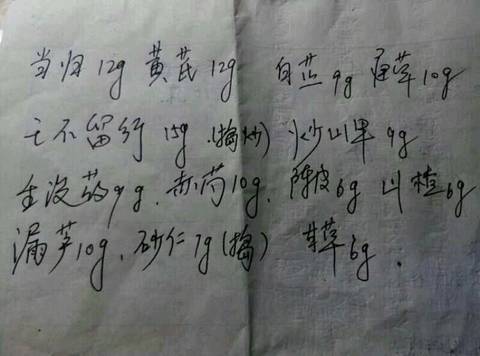 当归12g 黄芪12g 白芷9g 通草10g
王不留行 15g (捣炒) 炒山甲 9g
生没药9g、赤芍10g、陈皮6g 山楂6g
漏芦10g、砂仁7g(捣) 甘草6g.